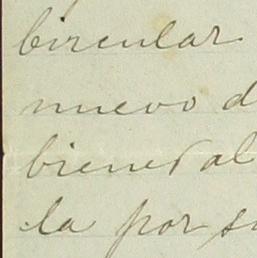 circular
nuevo d
bienes al
la por su